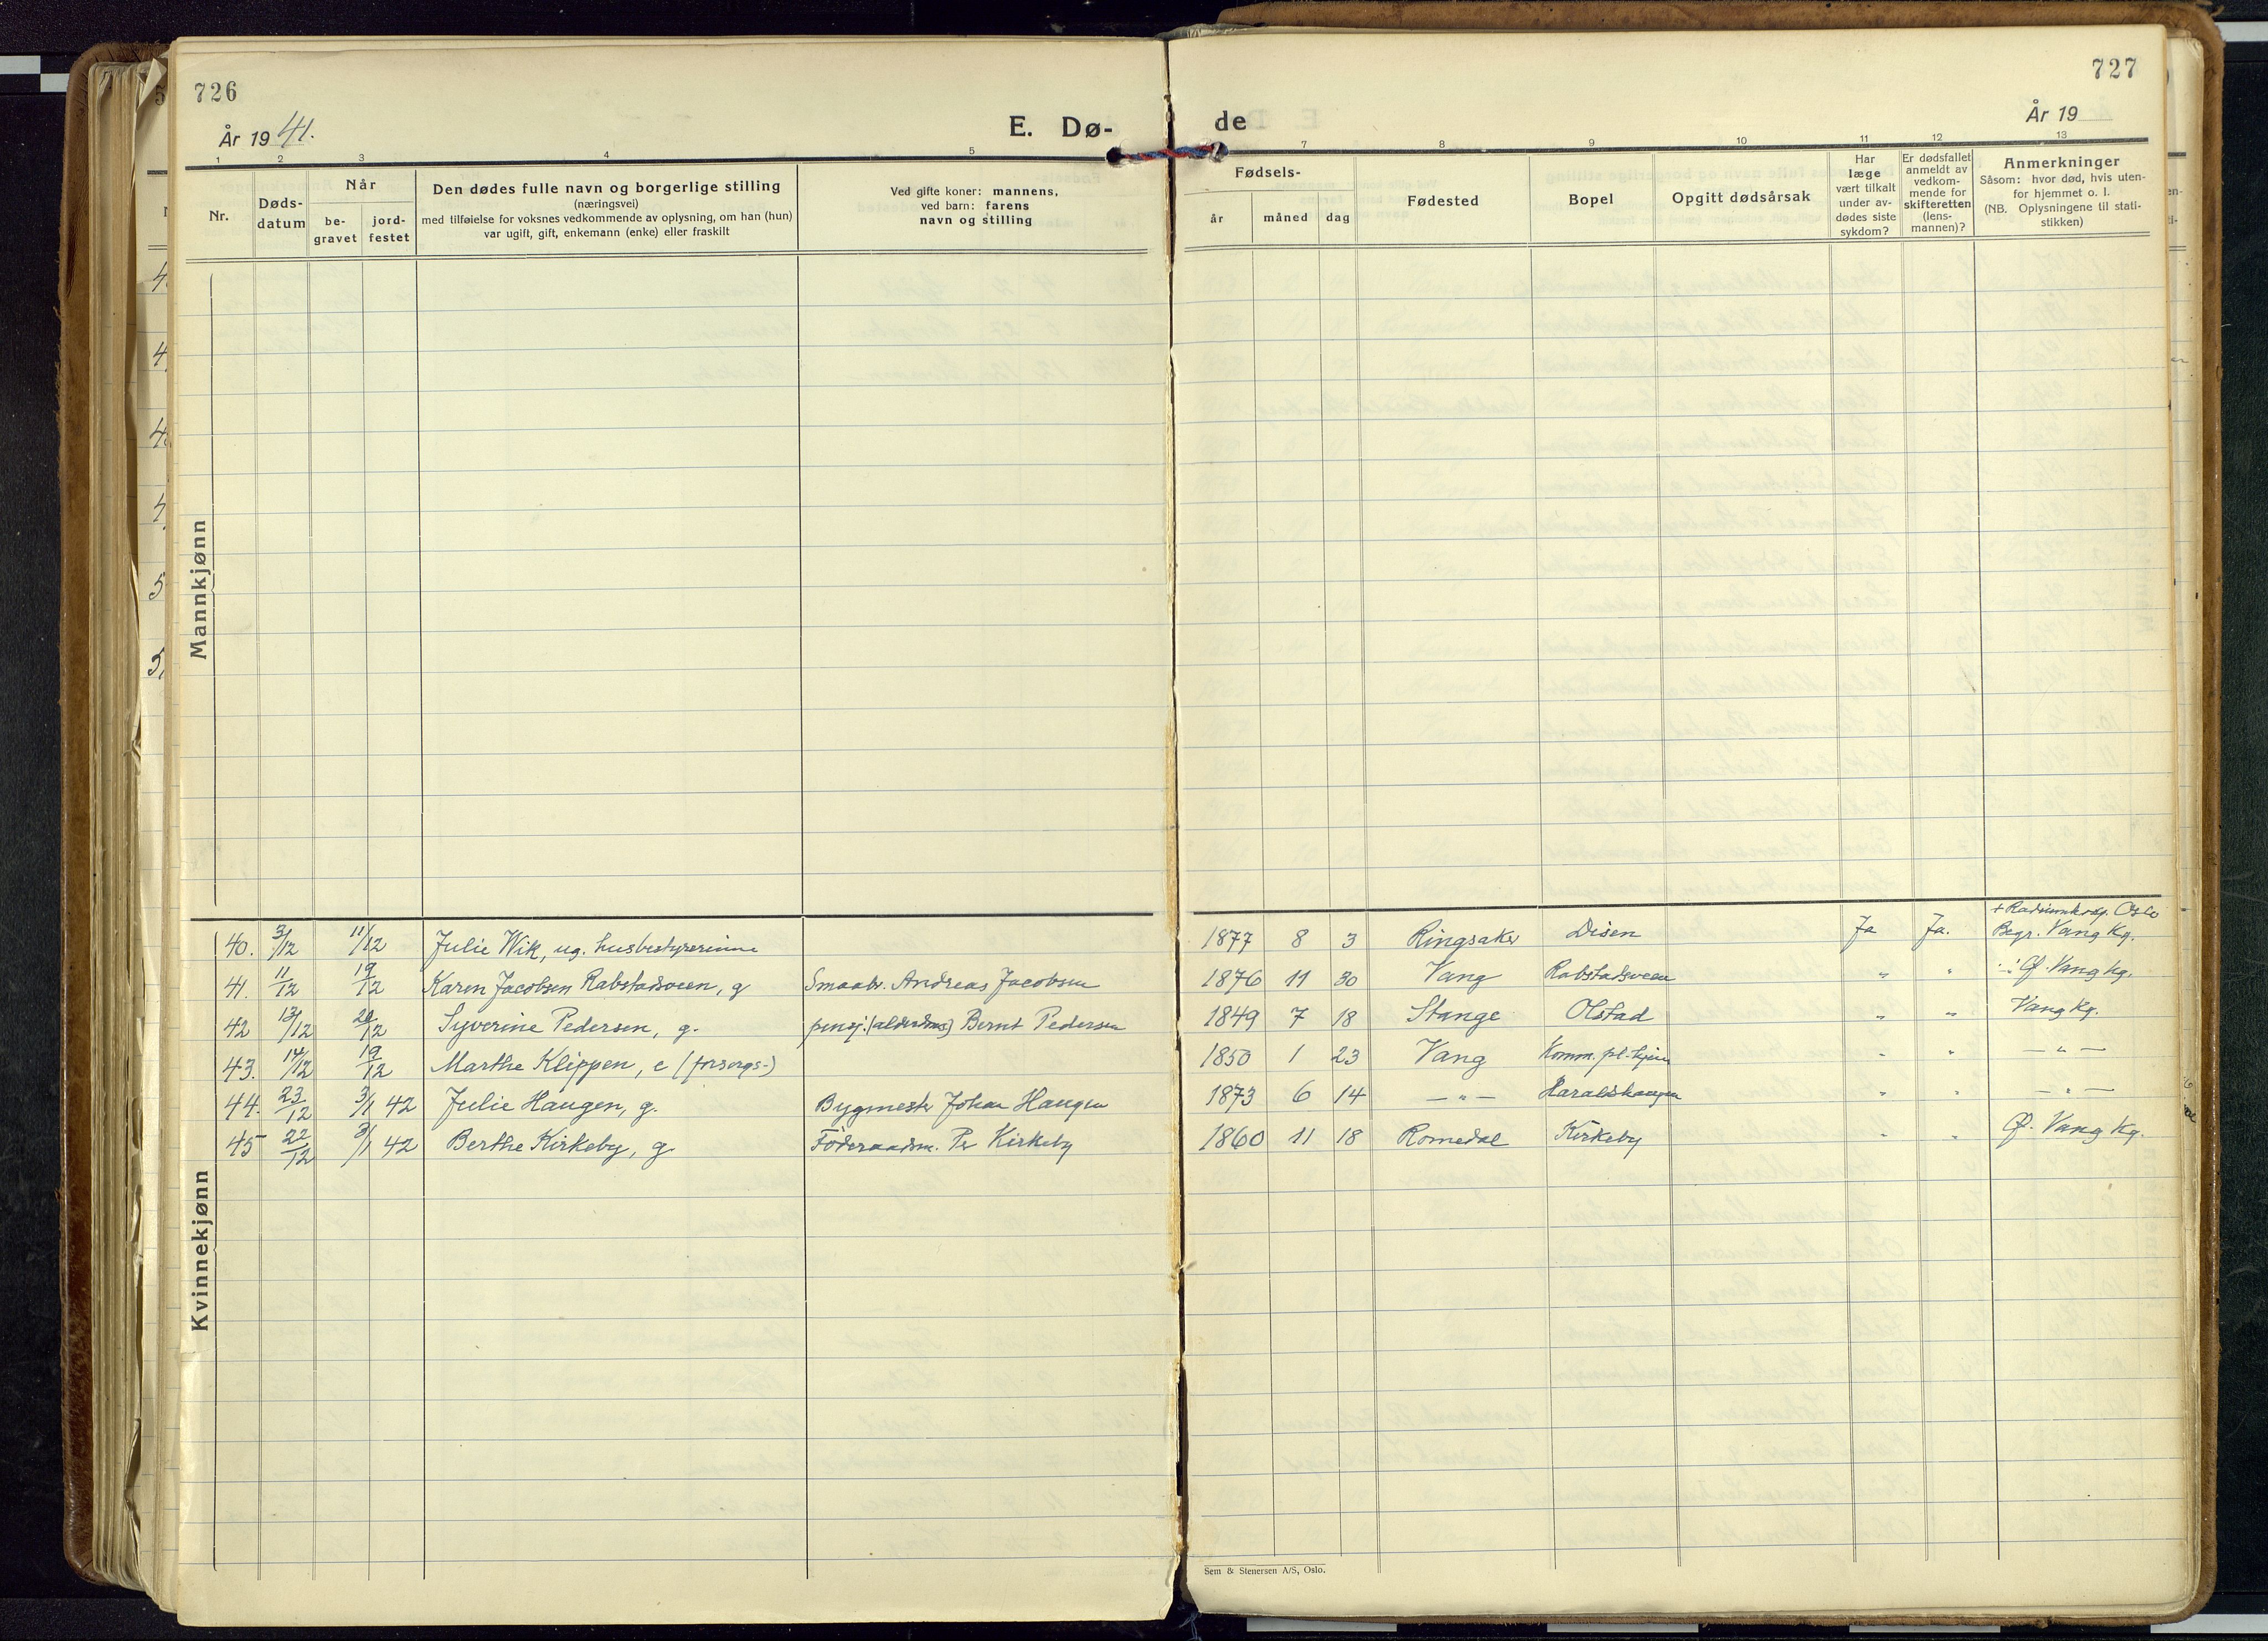 726
År 1941.
E. Dø-
de
727
År 19
1 2 3 4 5 7 8 9 10 11 12 13
Nr.
Døds-
datum
Når
be-
gravet
jord-
festet
Den dødes fulle navn og borgerlige stilling
(næringsvei)
med tilføielse for voksnes vedkommende av oplysning, om han (hun)
var ugift, gift, enkemann (enke) eller fraskilt
Ved gifte koner: mannens,
ved barn: farens
navn og stilling
Fødsels-
år måned dag
Fødested
Bopel
Opgitt dødsårsak
Har
læge
vært tilkalt
under av-
dødes siste
sykdom?
Er dødsfallet
anmeldt av
vedkom-
mende for
skifteretten
(lens-
mannen)?
Anmerkninger
Såsom: hvor død, hvis uten-
for hjemmet o. l.
(NB. Oplysningene til stati-
stikken)
Mannkjønn
Kvinnekjønn
+ Radiumhosp. Oslo
40. 3/12 11/12 Julie Wik, ug. husbestyrerinne 1877 8 3 Ringsaker Disen Ja Ja. Begr. Vang Kg.
41. 11/12 19/12 Karen Jacobsen Rabstadsveen, g Smaabr. Andreas Jacobsen 1876 11 30 Vang Rabstadsveen " " Ø. Vang Kg.
42 13/12 20/12 Syverine Pedersen, g. pensj. Bernt Pedersen 1849 7 18 Stange Olstad " " Vang Kg.
43. 14/12 19/12 Marthe Klippen, e (forsorgs-) 1850 1 23 Vang Komm. pl.hjem " " — " —
44. 23/12 3/1 42 Julie Haugen, g. Bygmester Johan Haugen 1873 6 14 — " — Haraldshaugen " " — " —
45 22/12 3/1 42 Berthe Kirkeby, g. Föderaadsm. Per Kirkeby 1860 11 18 Romedal Kirkeby " " Ø. Vang Kg.
Sem & Stenersen A/S, Oslo.